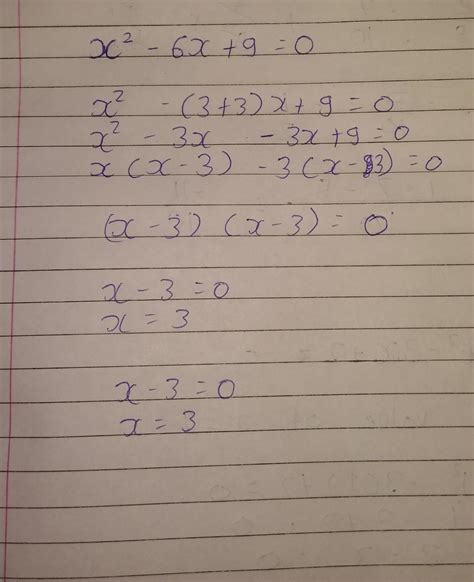 x² - 6x + 9 = 0
x² - (3+3)x + 9 = 0
x² - 3x - 3x + 9 = 0
x(x-3) - 3(x-3) = 0
(x-3) (x-3) = 0
x - 3 = 0
x = 3
x - 3 = 0
x = 3